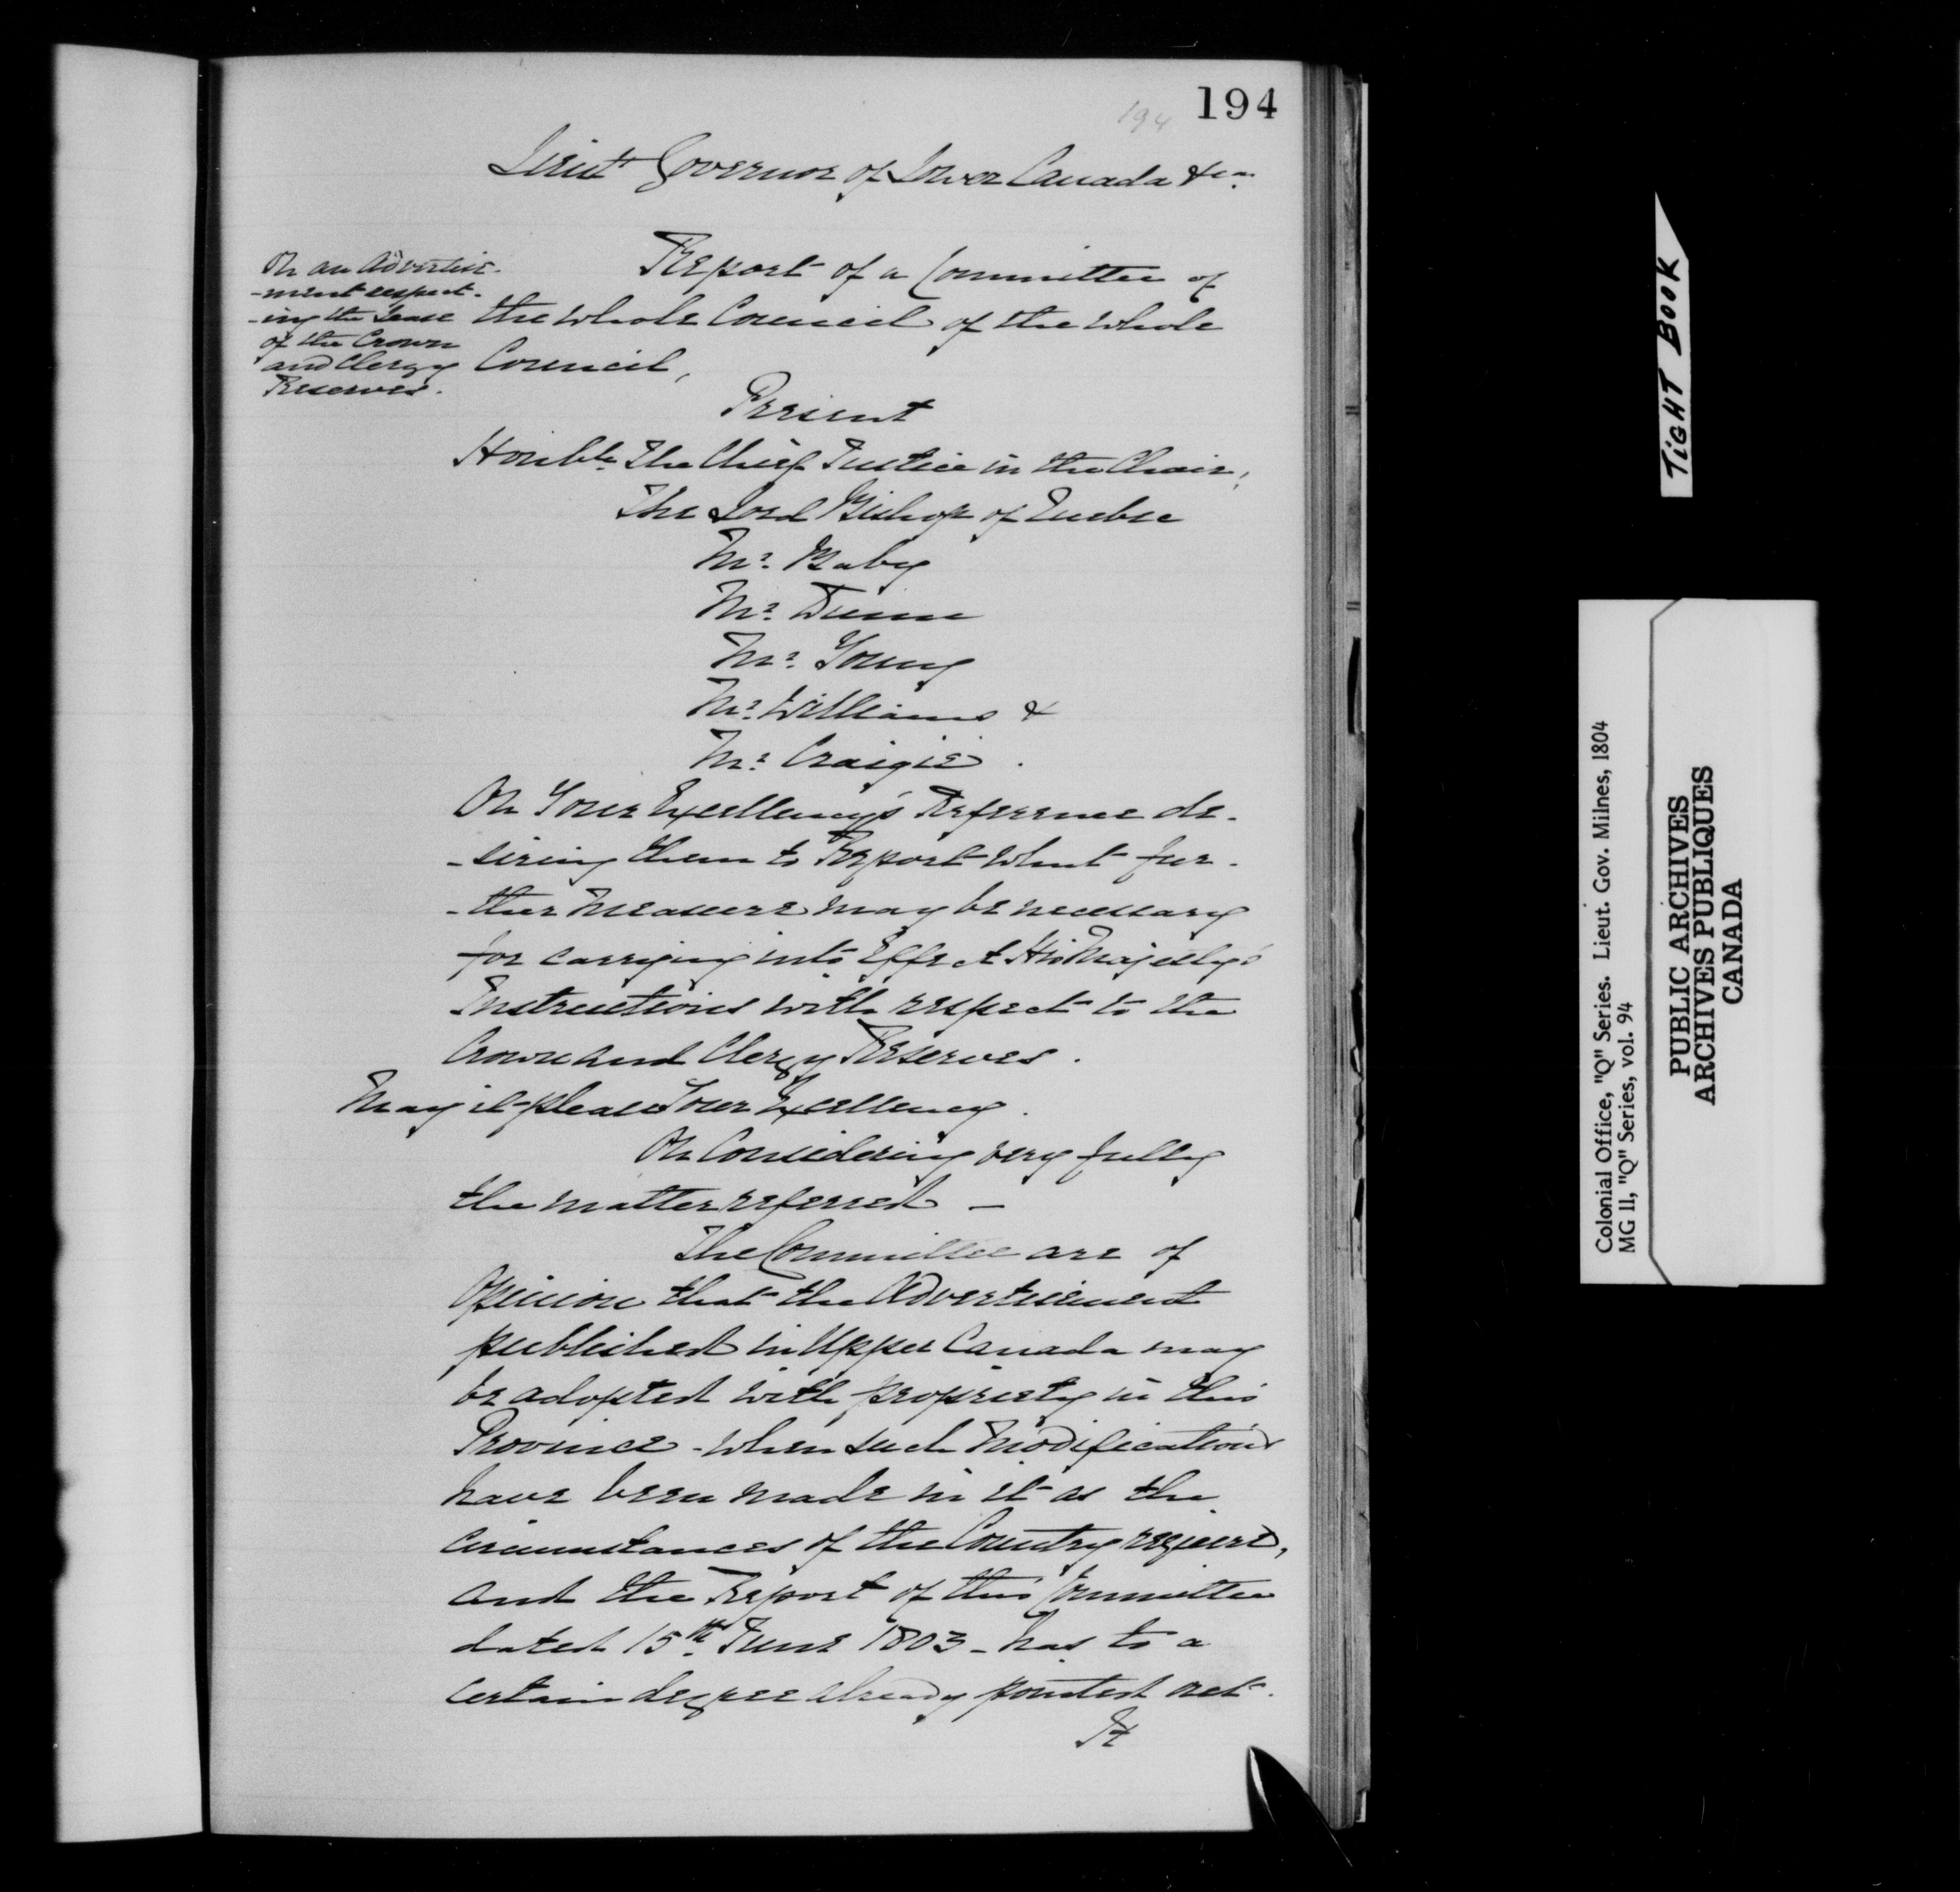 194
194
Lieut Governor of Lower Canada &ca.
On an Advertise-
-ment respect-
-ing the Lease
of the Crown
and Clergy
Reserves.
Report of a Committee of
the whole Council of the whole
Council,
Present
Honble. The Chief Justice in the Chair,
The Lord Bishop of Quebec
Mr. Baby
Mr. Dunn
Mr. Young
Mr. Williams &
Mr. Craigie.
On Your Excellency's Reference de-
-siring them to Report what fur-
-ther measure may be necessary
for carrying into Effect His Majesty's
Instructions with respect to the
Crown and Clergy Reserves.
May it please Your Excellency.
On Considering very fully
the matter referred —
The Committee are of
Opinion that the Advertisement
published in Upper Canada may
be adopted with propriety in this
Province - when such Modifications
have been made in it as the
Circumstances of the Country require,
and the Report of this Committee
dated 15th. June 1803 - has to a
certain degree already pointed out.
It
TIGHT BOOK
Colonial Office, "Q" Series. Lieut. Gov. Milnes, 1804
MG 11, "Q" Series, vol. 94
PUBLIC ARCHIVES
ARCHIVES PUBLIQUES
CANADA